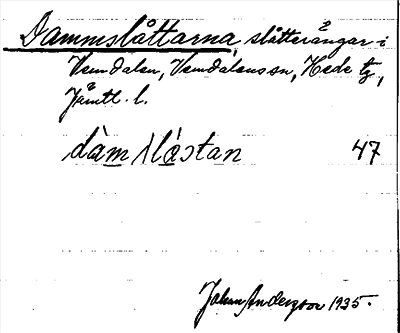 Dammslåttarna, slåtterängar i
Vemdalen, Vemdalens sn, Hede tg,
Jämtl. l.
dàm/slåstan 47
Johan Anderson 1935.